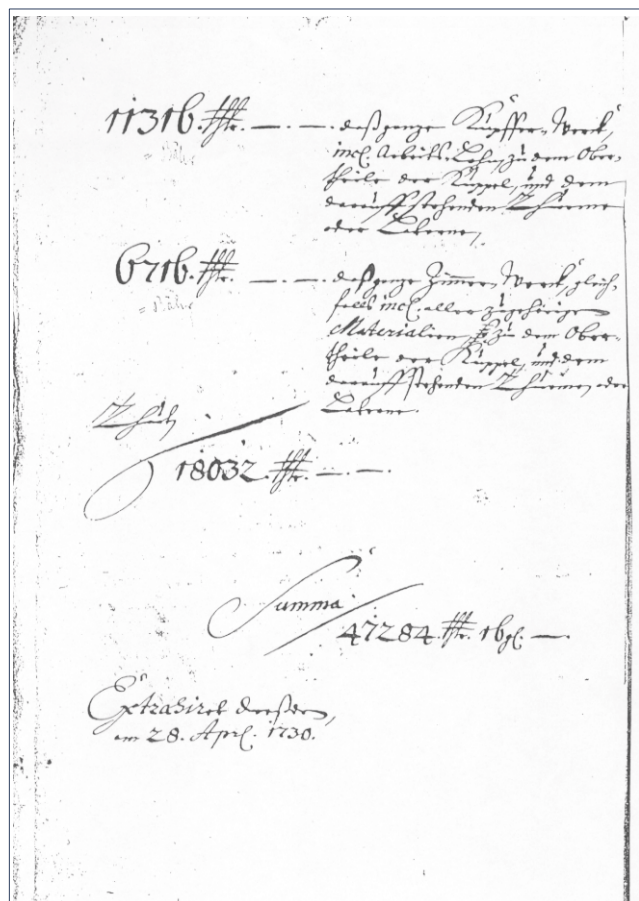 11316. Thlr. — . — . daß ganze Kupffer-Werck,
incl. Arbeits-Lohn, zu dem Ober-
theile der Kuppel, und dem
daruff stehenden Thurme
oder Laterne,
6716. Thlr. — . — . daß ganze Zimmer-Werck, gleich-
falls incl. aller zugehörigen
Materialien, zu dem Ober-
theile der Kuppel, und dem
daruff stehenden Thurme, oder
Laterne.
Thut
18032. Thlr. — . — .
Summa
47284. Thlr. 16 gl. —
Extrahiret Dreßden,
am 28. Apl. 1730.